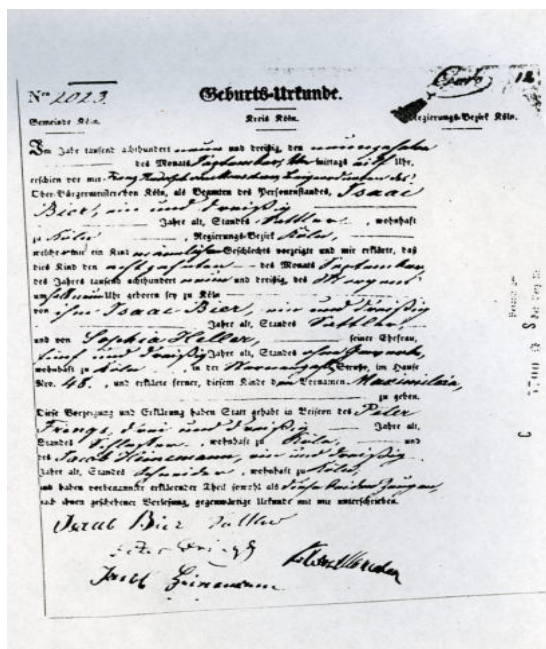 12
Nro 2023.
Geburts-Urkunde.
Gemeinde Köln. Kreis Köln. Regierungs-Bezirk Köln.
Im Jahr tausend achthundert neun und dreißig, den neunzehnten
des Monats September, Vormittags Uhr,
erschien vor mir Franz Rudolph von Münchhausen, Beigeordneten des
Ober-Bürgermeisters von Köln, als Beamten des Personenstandes, Isaac
Bier, ein und dreißig
Jahre alt, Standes Sattler, wohnhaft
zu Köln, Regierungs-Bezirk Köln,
welcher mir ein Kind männlichen Geschlechts vorzeigte und mir erklärte, daß
dies Kind den achtzehnten des Monats September
des Jahres tausend achthundert neun und dreißig, des Morgens
um halb neun Uhr geboren sey zu Köln
von ihm Isaac Bier, ein und dreißig
Jahre alt, Standes Sattler,
und von Sophia Heller, seiner Ehefrau,
fünf und dreißig Jahre alt, Standes ohne Gewerbe,
wohnhaft zu Köln, in der Straße, im Hause
Nro. 48., und erklärte ferner, diesem Kinde den Vornamen Maximilian,
zu geben.
Diese Vorzeigung und Erklärung haben Statt gehabt in Beiseyn des Peter
Frings, drei und dreißig Jahre alt,
Standes, wohnhaft zu Köln, und
des Jacob Heinemann, ein und dreißig
Jahre alt, Standes Schneider, wohnhaft zu Köln,
und haben vorbenannter erklärender Theil sowohl als diese beiden Zeugen,
nach ihnen geschehener Vorlesung, gegenwärtige Urkunde mit mir unterschrieben.
Isaac Bier Sattler
Peter Frings
Jacob Heinemann